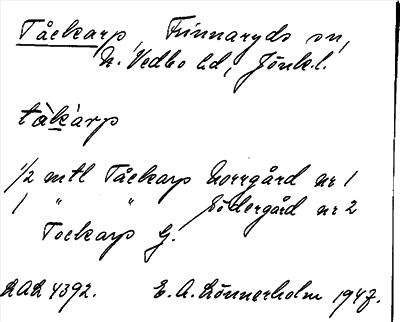 Tåckarp, Finnaryds sn,
N. Vedbo hd, Jönk.l.
tàkárp
1/2 mtl Tåckarp Norrgård nr 1
1 " " Södergård nr 2
Tockarp G.
RAÄ 4392. E. A. Lönnerholm 1947.